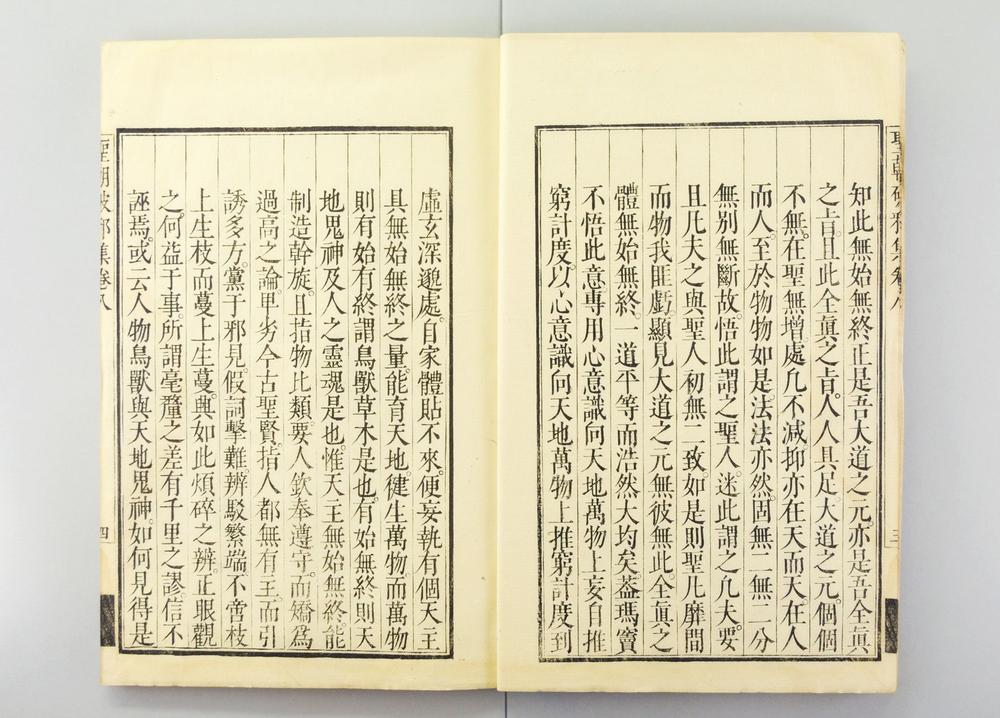 聖朝破邪集卷八
三
知此無始無終正是吾大道之元亦是吾全眞
之旨且此全眞之旨人人具足大道之元個個
不無在聖無增處凡不減抑亦在天而天在人
而人至於物物如是法法亦然固無二無二分
無別無斷故悟此謂之聖人迷此謂之凡夫要
且凡夫之與聖人初無二致如是則聖凡靡間
而物我匪虧顯見大道之元無彼無此全眞之
體無始無終一道平等而浩然大均矣葢瑪竇
不悟此意專用心意識向天地萬物上妄自推
窮計度以心意識向天地萬物上推窮計度到
虛玄深邈處自家體貼不來便妄執有個天主
具無始無終之量能育天地健生萬物而萬物
則有始有終謂鳥獸草木是也有始無終則天
地鬼神及人之靈魂是也惟天主無始無終能
制造幹旋且指物比類要人欽奉遵守而矯爲
過高之論甲劣今古聖賢指人都無有主而引
誘多方黨于邪見假詞擊難辨駁繁端不啻枝
上生枝而蔓上生蔓與如此煩碎之辨正眼觀
之何益于事所謂毫釐之差有千里之謬信不
誣焉或云人物鳥獸與天地鬼神如何見得是
聖朝破邪集卷八
四